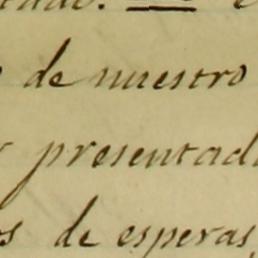 de nuestro
presentad
de esperas,